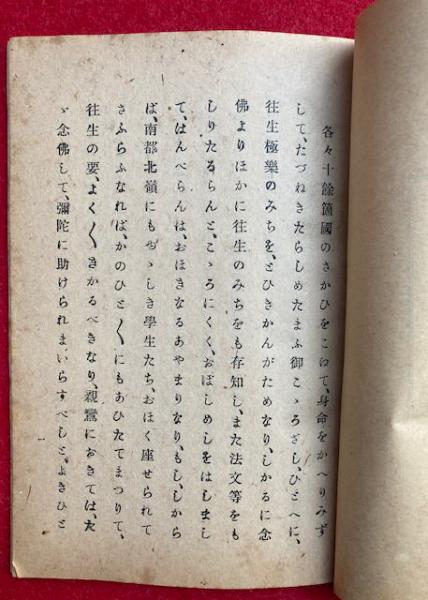 各々十餘箇國のさかひをこえて、身命をかへりみず
して、たづねきたらしめたまふ御こゝろざし、ひとへに、
往生極樂のみちを、とひきかんがためなり、しかるに念
佛よりほかに往生のみちをも存知し、また法文等をも
しりたるらんと、こゝろにくく、おぼしめしをはしまし
て、はんべらんは、おほきなるあやまりなり、もし、しから
ば、南都北嶺にもゆゝしき學生たち、おほく座せられて
さふらふなれば、かのひと〱にもあひたてまつりて、
往生の要、よく〱きかるべきなり、親鸞におきては、た
ゞ念佛して、彌陀に助けられまいらすべしと、よきひと
一